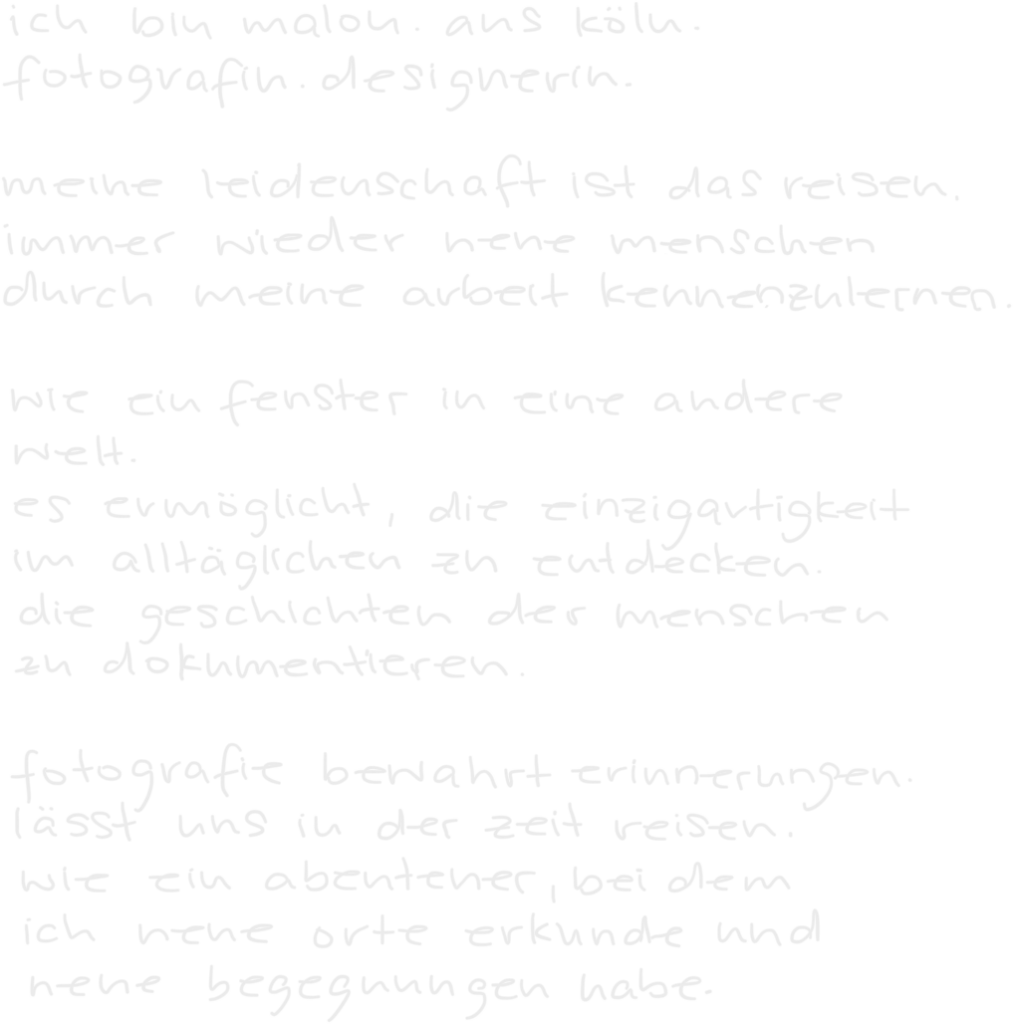 ich bin malou. aus köln.
fotografin. designerin.
meine leidenschaft ist das reisen.
immer wieder neue menschen
durch meine arbeit kennenzulernen.
wie ein fenster in eine andere
welt.
es ermöglicht, die einzigartigkeit
im alltäglichen zu entdecken.
die geschichten der menschen
zu dokumentieren.
fotografie bewahrt erinnerungen.
lässt uns in der zeit reisen.
wie ein abenteuer, bei dem
ich neue orte erkunde und
neue begegnungen habe.